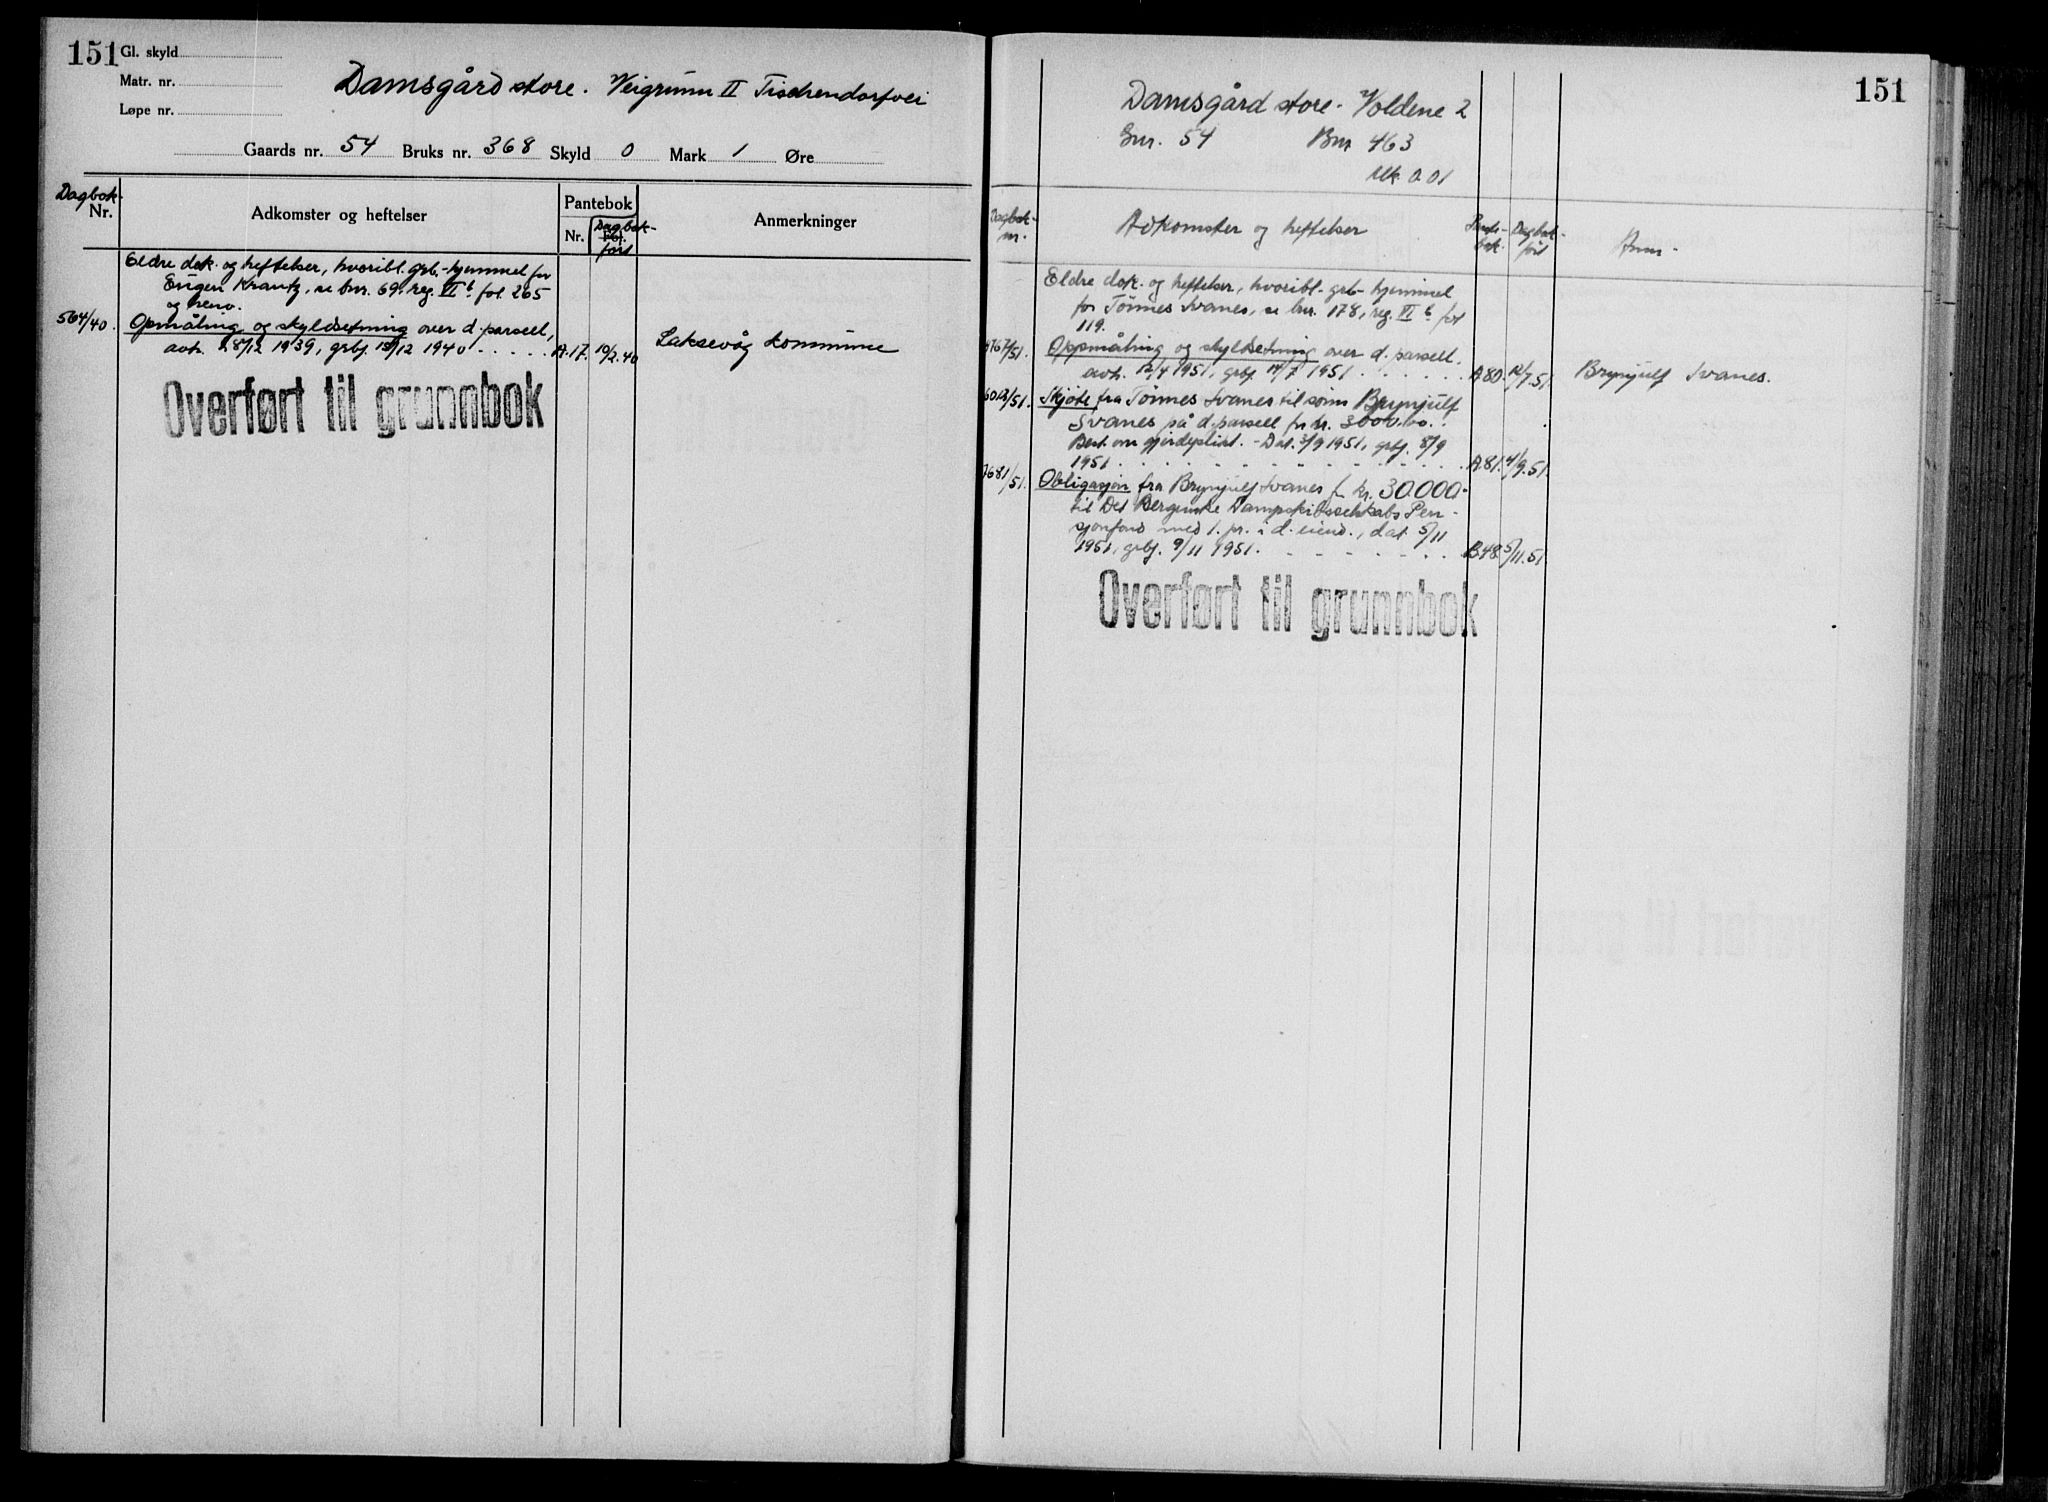 151
Gl. skyld
Matr. nr.
Løpe nr.
Damsgård store. Veigrunn II Tischendorfvei
Gaards nr. 54 Bruks nr. 368 Skyld 0 Mark 1 Øre
Dagbok-
Nr.
Adkomster og heftelser
Pantebok
Nr.
Fol.
Dagbok-
ført
Anmerkninger
Eldre dok. og heftelser, hvoribl. grb.-hjemmel for
Eugen Krantz, se bnr. 69, reg. VI b. fol. 265
og henv.
564/40. Opmåling og skyldsetning over d. parsell,
avh. 28/12 1939, grbj. 15/12 1940 . . . . . A.17. 10/2.40
Laksevåg kommune
Overført til grunnbok
151
Damsgård store. Voldene 2
Gnr. 54 Bnr 463
Mk 0.01
Dagbok-
nr.
Adkomster og heftelser
Pante-
bok.
Dagbok-
ført
Anm.
Eldre dok. og heftelser, hvoribl. grb- hjemmel
for Tönnes Svanes, se bnr. 178, reg. VI b fol
119.
4767/51. Oppmåling og skyldsetning over d. parsell.
avh. 12/4 1951, grbj. 14/7 1951 . . . . . . A80. 12/7.51. Brynjulf Svanes.
6012/51. Skjöte fra Tönnes Svanes til sönn Brynjulf
Svanes på d. parsell for kr. 3000.00.
Best. om gjerdeplikt. - Dat. 3/9 1951, grbj. 8/9
1951 . . . . . . . . . . . . A81. 4/9.51.
7681/51. Obligasjon fra Brynjulf Svanes for kr. 30.000-
til Det Bergenske Dampskibsselskabs Pen-
sjonsfond med 1. pr. i d. eiend., dat 5/11
1951, grbj. 9/11 1951. . . . . . . . B48 5/11.51
Overført til grunnbok